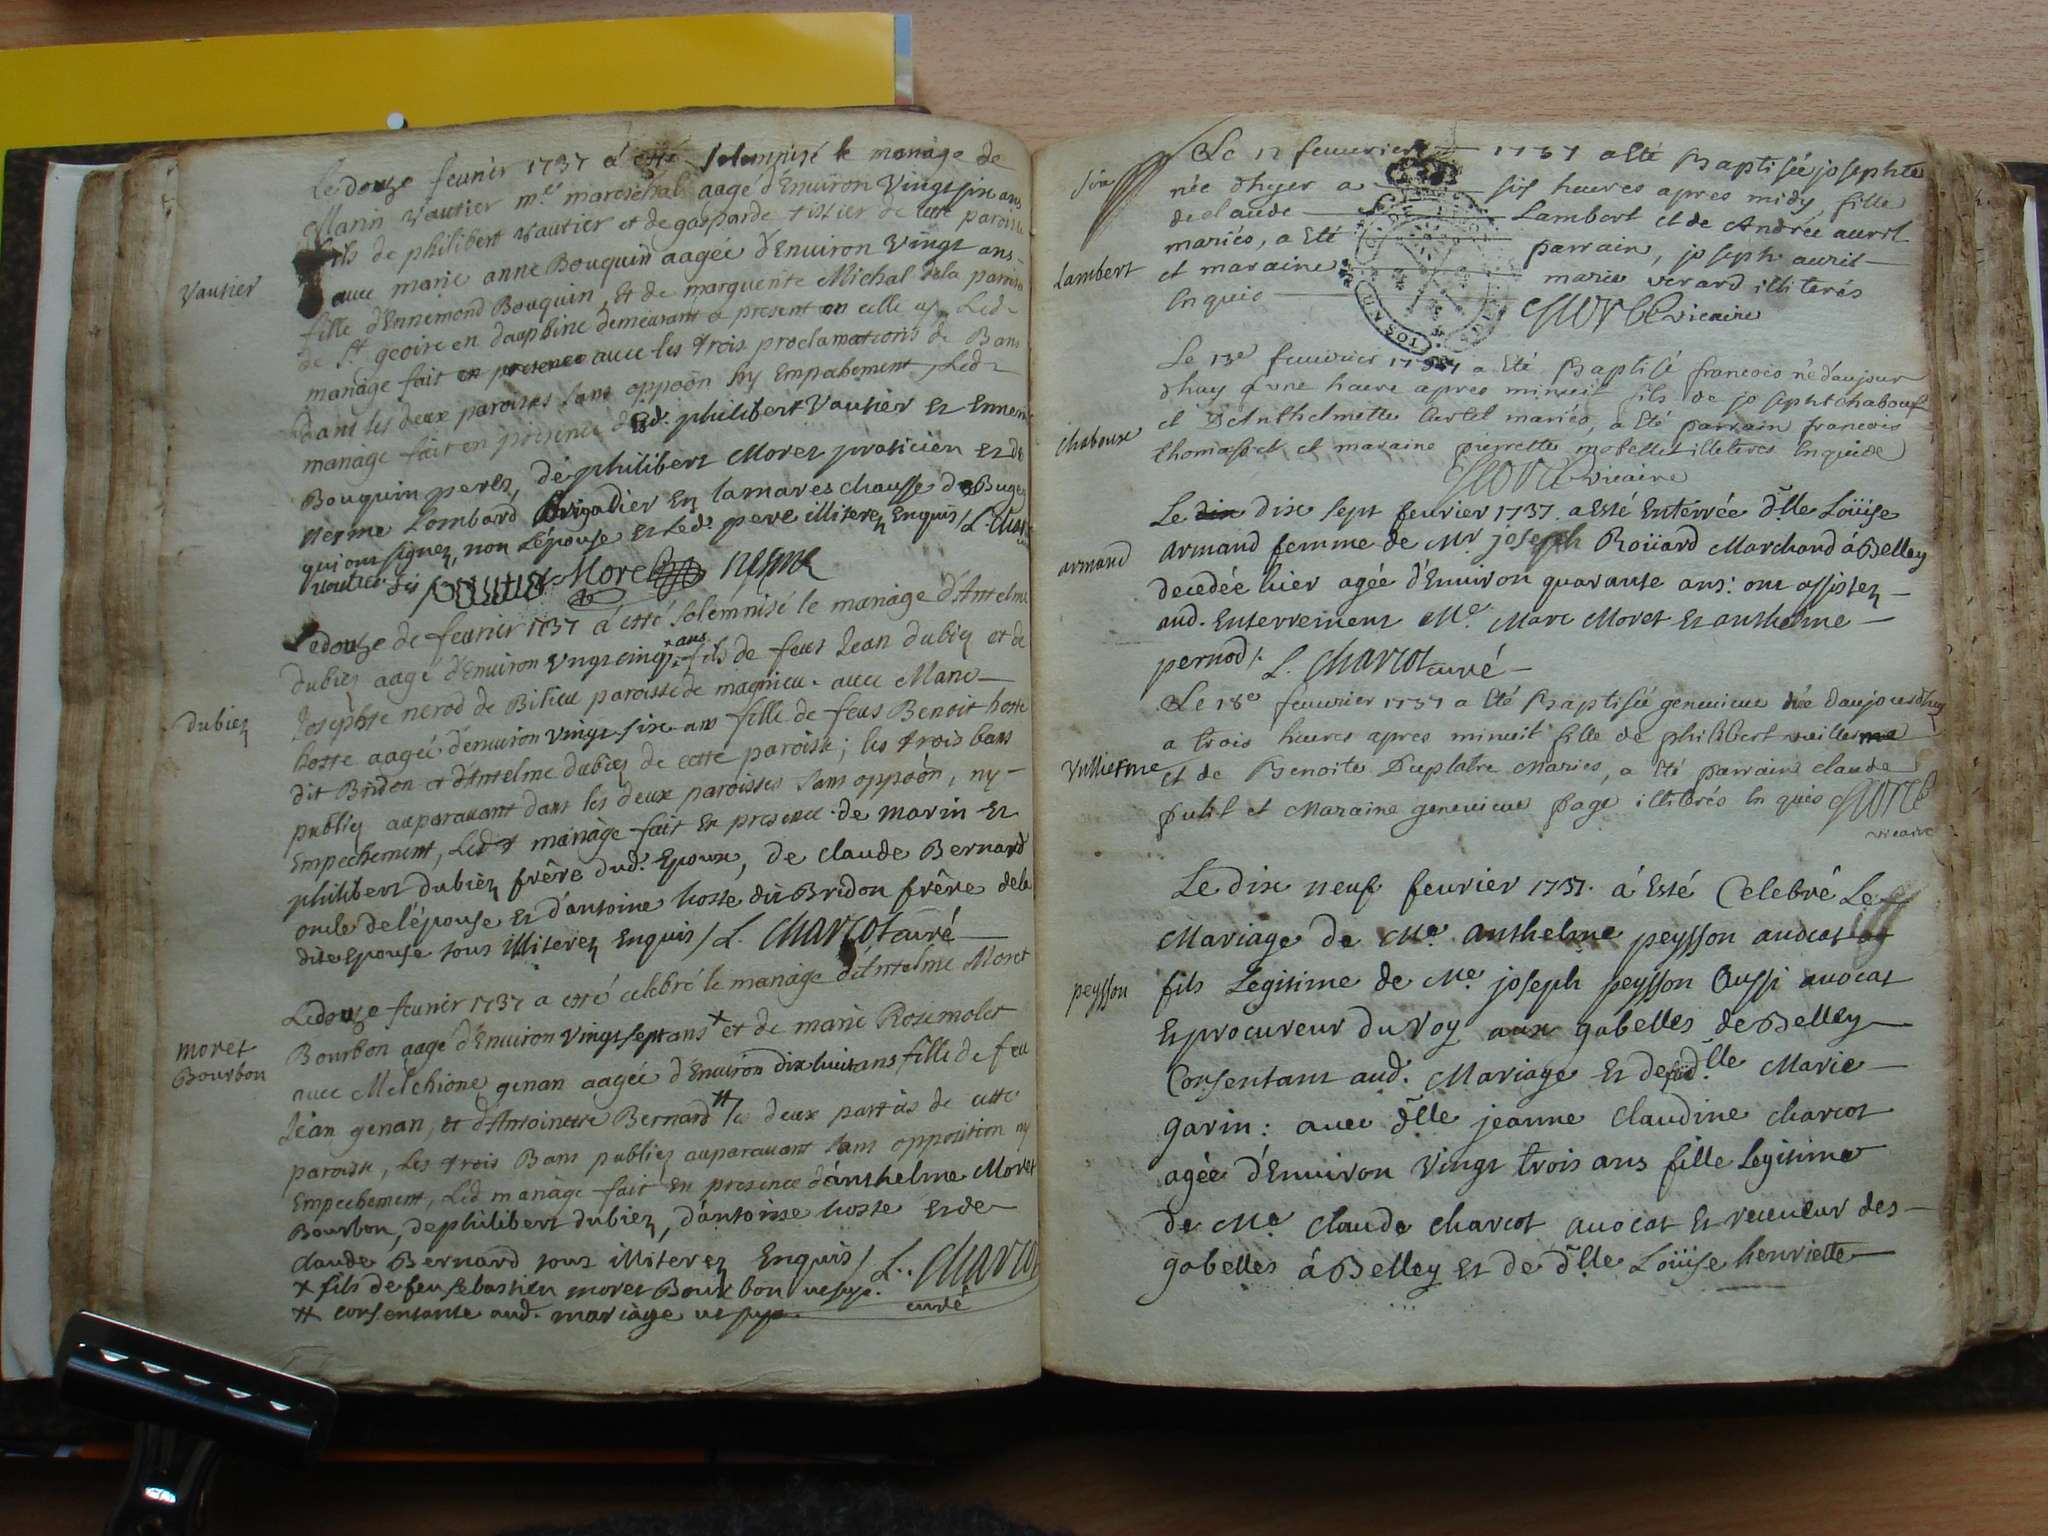 Le douze feurier 1737 a esté solemnisé le mariage de
Marin Vautier me. mareschal aagé d'Enuiron Vingt six ans
fils de philibert vautier et de gasparde tissier de cette paroisse
auec marie anne Bouquin aagée d'Enuiron Vingt ans
Vautier
fille d'Ennemond Bouquin, Et de marguerite Michal de la paroisse
de St. geoire en dauphiné demeurant a present en celle cy, Led.
mariage fait en presence auec les trois proclamations de Bans
dans les deux paroisses sans oppoõn ny Empechement, Led.
mariage fait en presence desd. philibert Vautier et Ennemond
Bouquin peres, de philibert Moret praticien et de
nesme Lombard Brigadier En la mareschaussée de Bugey
qui ont signez, non l'épouse et led. pere illiterez Enquis / L. Char
vautier fils Moret nesme
Le douze de feurier 1737 a esté solémnisé le mariage d'Antelme
dubiez aagé d'Enuiron vingt cinq ans fils de feus Jean dubiez et de
Josephte nerod de Bilieu paroisse de magnieu. auec Marie
dubiez
hoste aagée d'enuiron vingt six ans fille de feus Benoit hoste
dit Bridon et d'Antelme dubiez de cette paroisse; les trois bans
publiez auparauant dans les deux paroisses sans oppoõn, ny
Empechement, Led. mariage fait En presence de marin et
philibert dubiez frére dud. Epoux, de claude Bernard
oncle de l'épouse et d'antoine hoste dit Bridon frére de la
dite Epouse tous illiterez Enquis / L. Charcot curé
Le douze feurier 1737 a esté celebré le mariage d'Antelme Moret
Bourbon aagé d'Enuiron vingt sept ans + et de marie Rose molet
moret
Bourbon
auec Melchione genan aagée d'Enuiron dix huit ans fille de feu
Jean genan, et d'Antoinette Bernard # les deux parties de cette
paroisse, les trois Bans publiez auparauant sans opposition ny
Empechement, Led mariage fait En presence d'anthelme Moret
Bourbon, de philibert dubiez, d'antoine hoste et de
claude Bernard tous illiterez Enquis / L. Charcot
+ fils de feu sebastien moret Bourbon
curé
# consentante aud. mariage
Le 12 feuurier 1737 a Eté Baptisée josephte
née d'hyer a six heures apres midy, fille
de claude Lambert et de Andrée auril
mariés, a Eté parrain, joseph auril
Lambert
et maraine marie verard illiterés
Enquis vicaire
Le 13e feuurier 1737 a Eté Baptisé francois né d'aujour
d'huy a une heure apres minuit fils de joseph chaboux
chaboux
et d'Anthelmette curtet mariés, a Eté parrain francois
thomasset et maraine pierrette illiterés Enquis
vicaire
Le dix sept feurier 1737. a Esté Enterrée dlle Loüise
armand
Armand femme de Mr joseph Roüard Marchand á Belley
decedée hier agée d'Enuiron quarante ans: ont assistez
aud. Enterrement Me. Marc Moret et anthelme
pernod /. L. Charcot curé
Le 18e feuurier 1737 a Eté Baptisée geneuieue née d'aujourdhuy
a trois heures apres minuit fille de philibert vuillerme
Vullierme
et de Benoite Duplatre Mariés, a Eté parrain claude
putit et Maraine geneuieue page illiterés Enquis
vicaire
Le dix neuf feurier 1737. á Esté Celebré Le
Mariage de Me. anthelme peysson auocat
peysson
fils Legitime de Me. joseph peysson Aussi auocat
Et procureur du Roy aux gabelles de Belley
Consentant aud. Mariage Et de feüe dlle Marie
garin: auec dlle jeanne claudine charcot
agée d'Enuiron Vingt trois ans fille Legitime
de Me claude charcot auocat Et receueur des
gabelles á Belley Et de dlle Loüise henriette